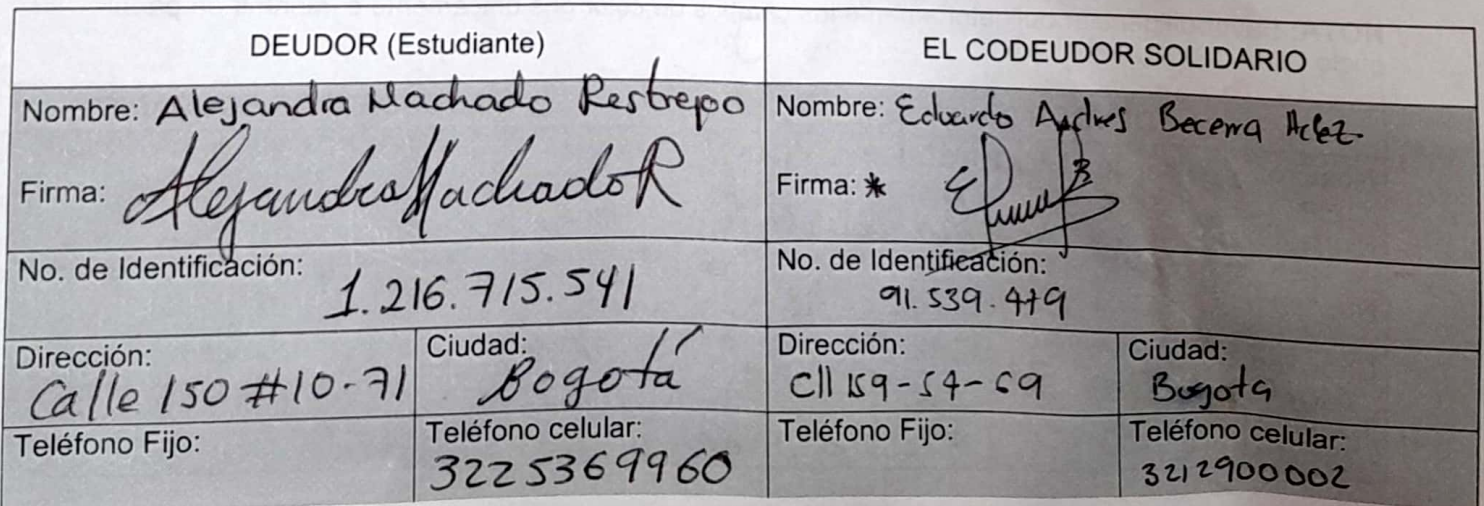 DEUDOR (Estudiante)
EL CODEUDOR SOLIDARIO
Nombre: Alejandra Machado Restrepo
Nombre: Eduardo Andres Becerra
Firma: Alejandra Machado R
Firma: *
No. de Identificación:
1.216.715.541
No. de Identificación:
91.539.479
Dirección:
Calle 150 #10-71
Ciudad:
Bogotá
Dirección:
Cll 159-54-69
Ciudad:
Bogota
Teléfono Fijo:
Teléfono celular:
3225369960
Teléfono Fijo:
Teléfono celular:
3212900002